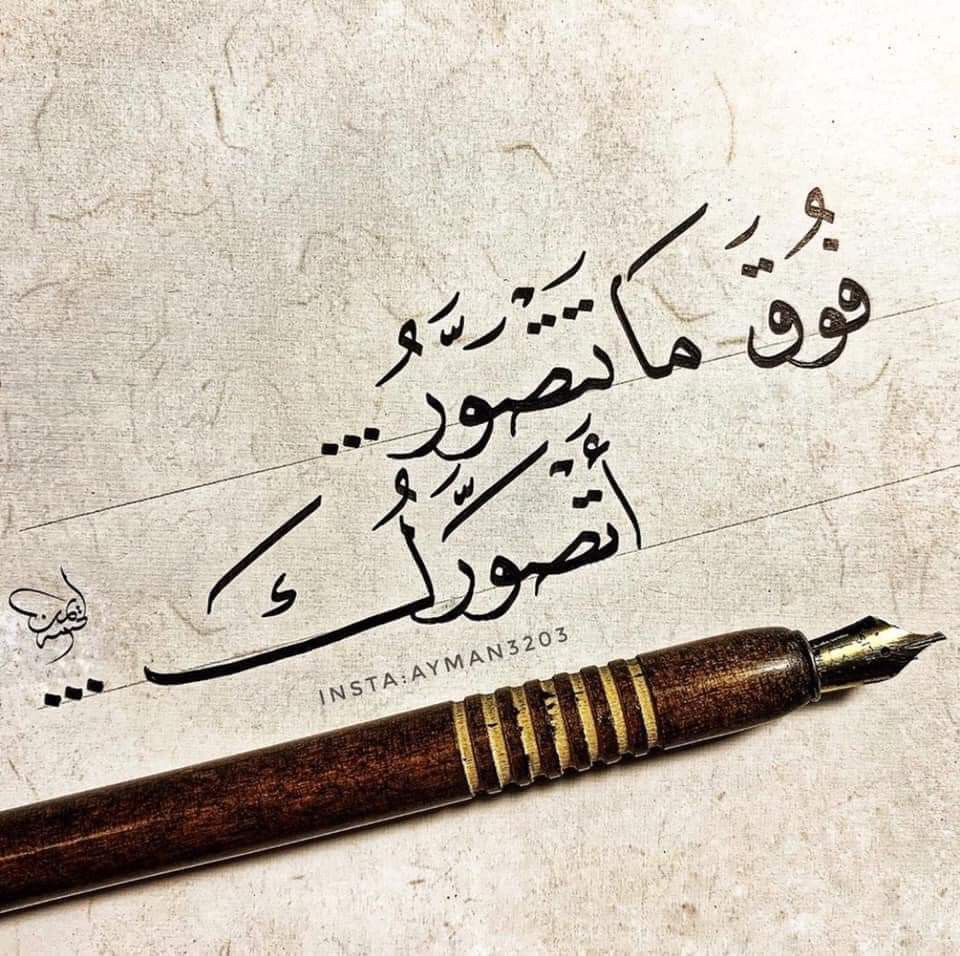 فُوقَ مَا تَتْصَوَّرُ...
أَتْصَوَّرُك...
INSTA:AYMAN3203